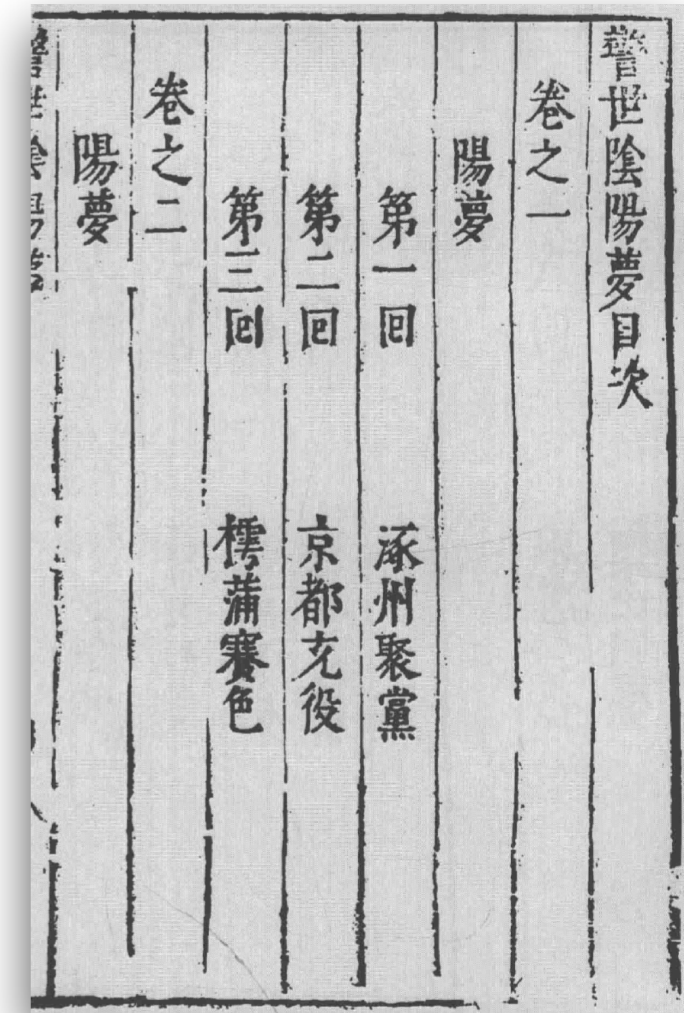 警世陰陽夢目次
卷之一
陽夢
第一囘 涿州聚黨
第二囘 京都充役
第三囘 樗蒲賽色
卷之二
陽夢
警世陰陽夢